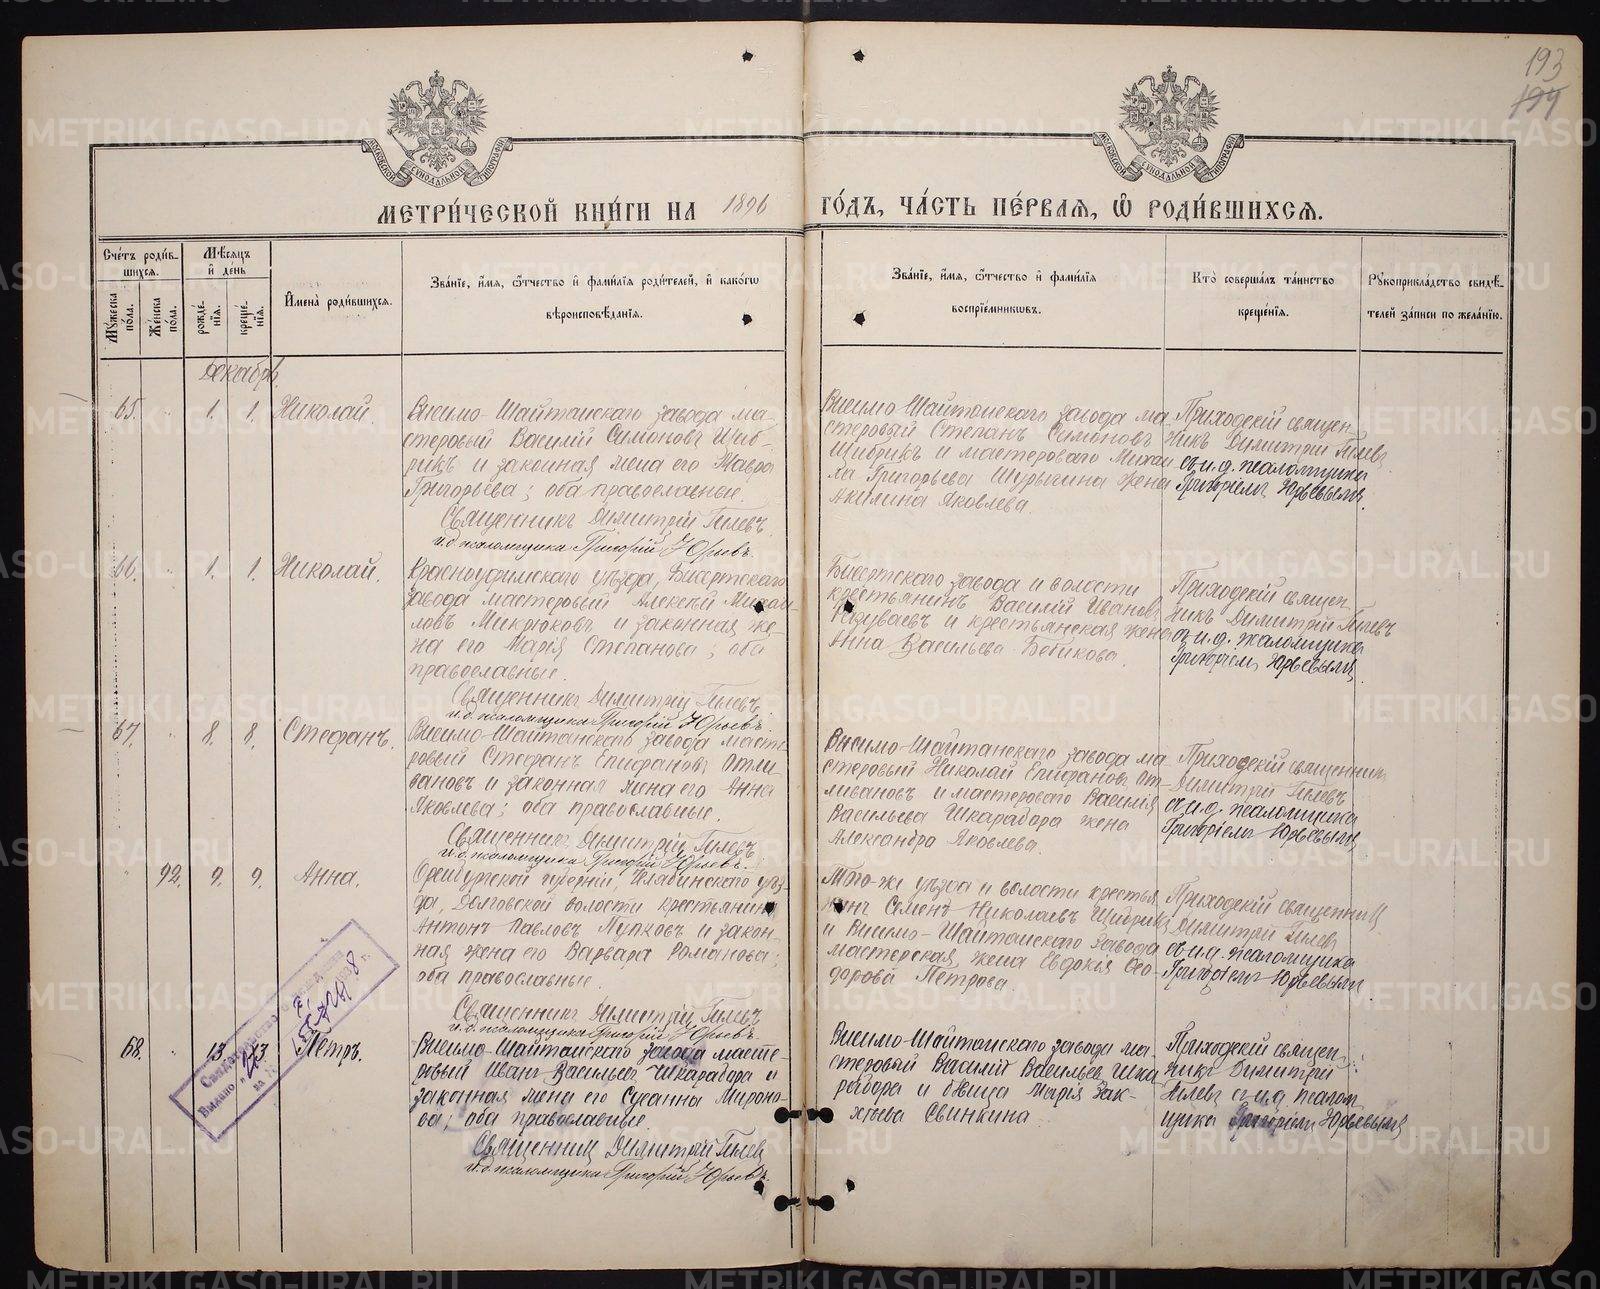 193
194
МЕТРИ́ЧЕСКОЙ КНИ́ГИ НА 1896 ГО́ДЪ, ЧА́СТЬ ПЕ́РВАЯ, Ѽ РОДИ́ВШИХСЯ.
Сче́тъ роди́в-
шихся.
Му́жеска по́ла.
Же́нска по́ла.
Мѣ́сяцъ
и҆ де́нь
рожде́-
нїя.
креще́-
нїя.
И҆мена̀ роди́вшихся.
Зва́нїе, и҆́мя, ѻ҆́тчество и҆ фами́лїя роди́телей, и҆ како́гѡ
вѣроисповѣ́данїя.
Зва́нїе, и҆́мя, ѻ҆́тчество и҆ фами́лїя
воспрїе́мникѡвъ.
Кто̀ соверша́лъ та́инство
креще́нїя.
Рꙋкоприкла́дство свидѣ́-
телей за́писи по жела́нїю.
Декабрь
65. " 1. 1. Николай.
Висимо-Шайтанскаго завода ма-
стеровый Василій Симоновъ Шиб-
рикъ и законная жена его Мавра
Григорьева; оба православные.
Священникъ Димитрій Гилевъ.
и.д. псаломщика Григорій Юрьевъ.
Висимо-Шайтанскаго завода ма-
стеровый Степанъ Симоновъ
Шибрикъ и мастероваго Михаи
ла Григорьева Шурыгина жена
Акилина Яковлева.
Приходскій священ
никъ Димитрій Гилевъ
съ и.д. псаломщика
Григоріемъ Юрьевымъ.
66. " 1. 1. Николай.
Красноуфимскаго уѣзда, Бисертскаго
завода мастеровый Алексѣй Михаи-
ловъ Микрюковъ и законная же-
на его Марія Степанова; оба
православные.
Священникъ Димитрій Гилевъ.
и.д. псаломщика Григорій Юрьевъ.
Бисертскаго завода и волости
крестьянинъ Василій Ивановъ
и крестьянская жена
Анна Васильева Бобикова.
Приходскій священ
никъ Димитрій Гилевъ
съ и.д. псаломщика
Григоріемъ Юрьевымъ.
67. " 8. 8. Стефанъ.
Висимо-Шайтанскаго завода масте-
ровый Стефанъ Епифановъ Отли-
вановъ и законная жена его Анна
Яковлева; оба православные.
Священникъ Димитрій Гилевъ
и.д. псаломщика Григорій Юрьевъ.
Висимо-Шайтанскаго завода ма-
стеровый Николай Епифановъ От-
ливановъ и мастероваго Василія
Васильева Шкарабора жена
Александра Яковлева.
Приходскій священникъ
Димитрій Гилевъ
съ и.д. псаломщика
Григоріемъ Юрьевымъ
" 92. 9. 9. Анна.
Оренбургской губерніи, Челябинскаго уѣз-
да, Долговской волости крестьянинъ
Антонъ Павловъ Пупковъ и закон-
ная жена его Варвара Романова;
оба православные.
Священникъ Димитрій Гилевъ
и.д. псаломщика Григорій Юрьевъ.
Того-же уѣзда и волости крестья
нинъ Семенъ Николаевъ
и Висимо-Шайтанскаго завода
мастерская жена Евдокія Ѳео-
дорова Петрова.
Приходскій священникъ
Димитрій Гилевъ
съ и.д. псаломщика
Григоріемъ Юрьевымъ
68. " 13 13 Петръ.
Висимо-Шайтанскаго завода масте-
ровый Иванъ Васильевъ Шкарабора и
законная жена его Сусанна Мироно-
ва; оба православные.
Священникъ Димитрій Гилевъ
и.д. псаломщика Григорій Юрьевъ.
Висимо-Шайтанскаго завода ма-
стеровый Василій Васильевъ Шка
рабора и дѣвица Марія Зах-
арьева Свинкина
Приходскій священ
никъ Димитрій
Гилевъ съ и.д. псалом
щика Григоріемъ Юрьевымъ
Свидетельство о рождении
Выдано
METRIKI.GASO-URAL.RU